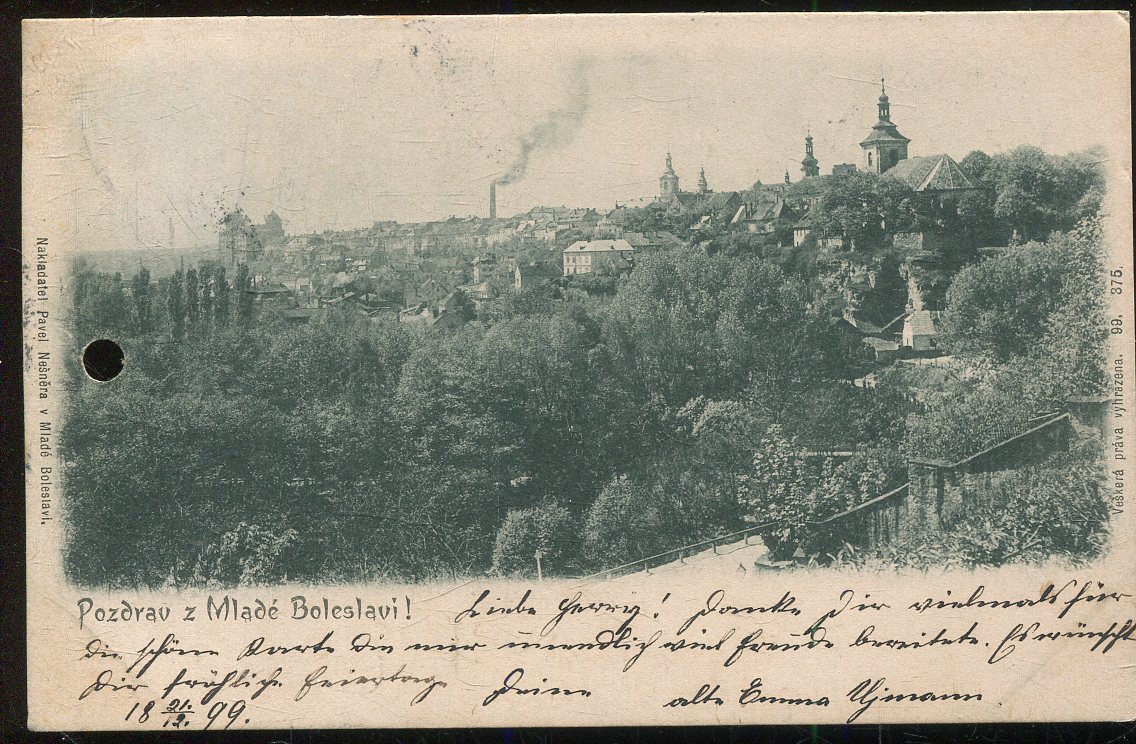 Nakladatel Pavel Nešněra v Mladé Boleslavi.
Veškerá práva vyhrazena. 99. 375.
Pozdrav z Mladé Boleslavi!
Liebe Herry! Danke Dir vielmals für
die schöne Karte die mir unendlich viel Freude bereitete. Es wünscht
Dir fröhliche Feiertage Deine alte Emma
18 21./12. 99.